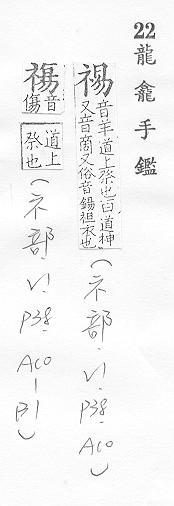 22龍龕手鑑
禓 音羊道上祭也曰道神
又音商又俗音鍚袒衣也
(ネ部.V1.P38.A00)
禓 音傷 道上祭也
(ネ部.V1.P38.A00-B1)